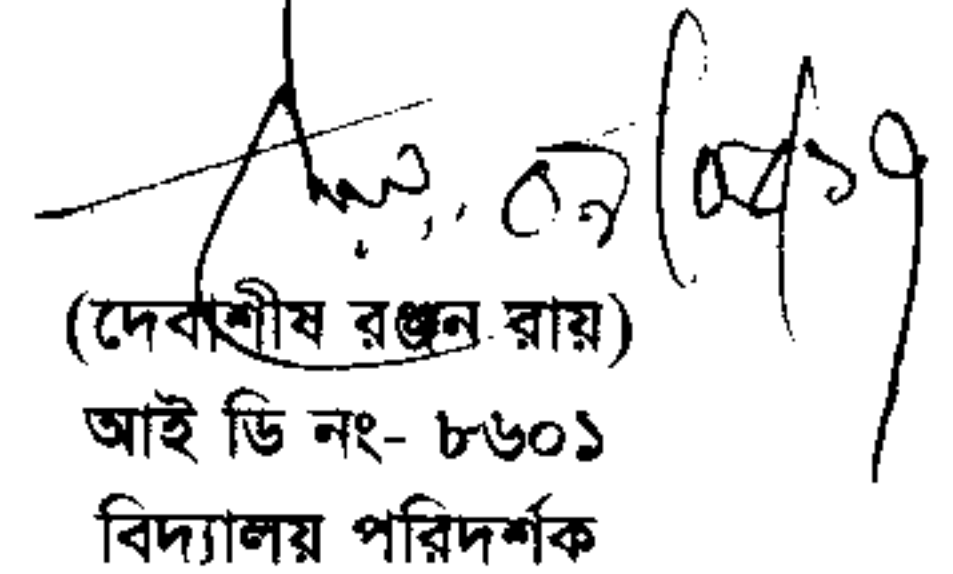 (দেবাশীষ রঞ্জন রায়)
আই ডি নং- ৮৬০১
বিদ্যালয় পরিদর্শক